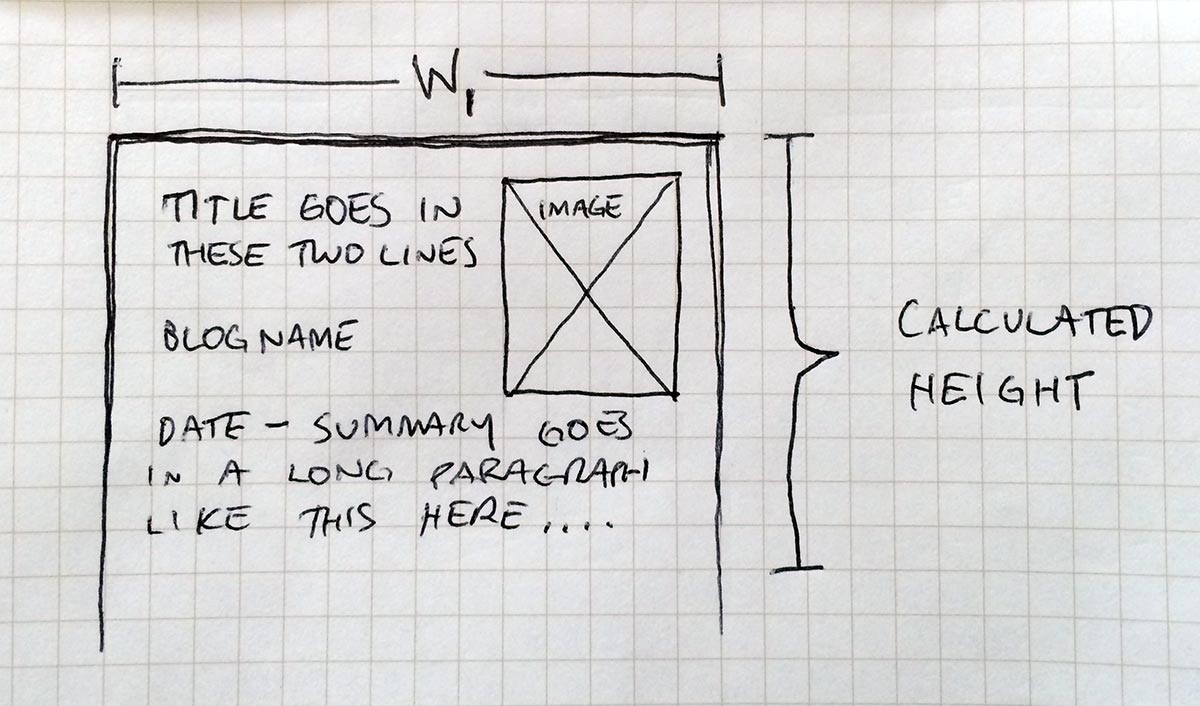 W1
TITLE GOES IN
THESE TWO LINES
IMAGE
BLOG NAME
DATE - SUMMARY GOES
IN A LONG PARAGRAPH
LIKE THIS HERE....
CALCULATED
HEIGHT